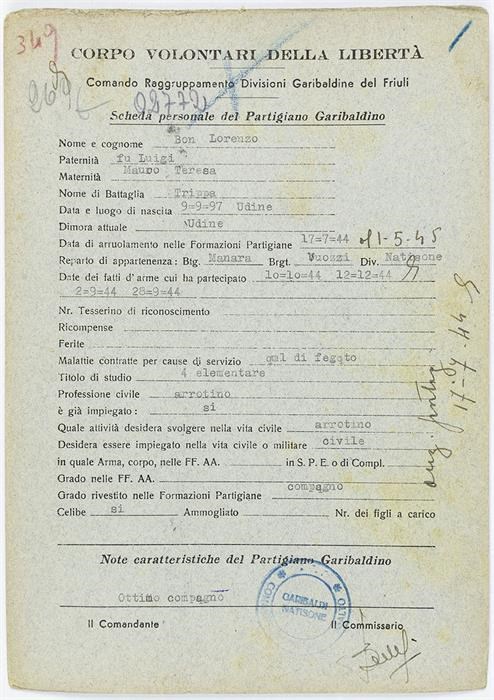 349
CORPO VOLONTARI DELLA LIBERTÀ
Comando Raggruppamento Divisioni Garibaldine del Friuli
22772
Scheda personale del Partigiano Garibaldino
Nome e cognome Bon Lorenzo
Paternità fu Luigi
Maternità Mauro Teresa
Nome di Battaglia Trippa
Data e luogo di nascita 9=9=97 Udine
Dimora attuale Udine
Data di arruolamento nelle Formazioni Partigiane 17=7=44 al 1-5-45
Reparto di appartenenza: Btg. Manara Brgt. Vuozzi Div. Natisone
Date dei fatti d'arme cui ha partecipato 1o=1o=44 12=12=44
2=9=44 28=9=44
Nr. Tesserino di riconoscimento
Ricompense
Ferite
Malattie contratte per cause di servizio qml di fegoto
Titolo di studio 4 elementare
Professione civile arrotino
è già impiegato: si
Quale attività desidera svolgere nella vita civile arrotino
Desidera essere impiegato nella vita civile o militare civile
in quale Arma, corpo, nelle FF. AA. in S. P. E. o di Compl.
Grado nelle FF. AA.
Grado rivestito nelle Formazioni Partigiane compagno
Celibe si Ammogliato Nr. dei figli a carico
17-7-44
Note caratteristiche del Partigiano Garibaldino
Ottimo compagno
GARIBALDI
NATISONE
Il Comandante Il Commissario